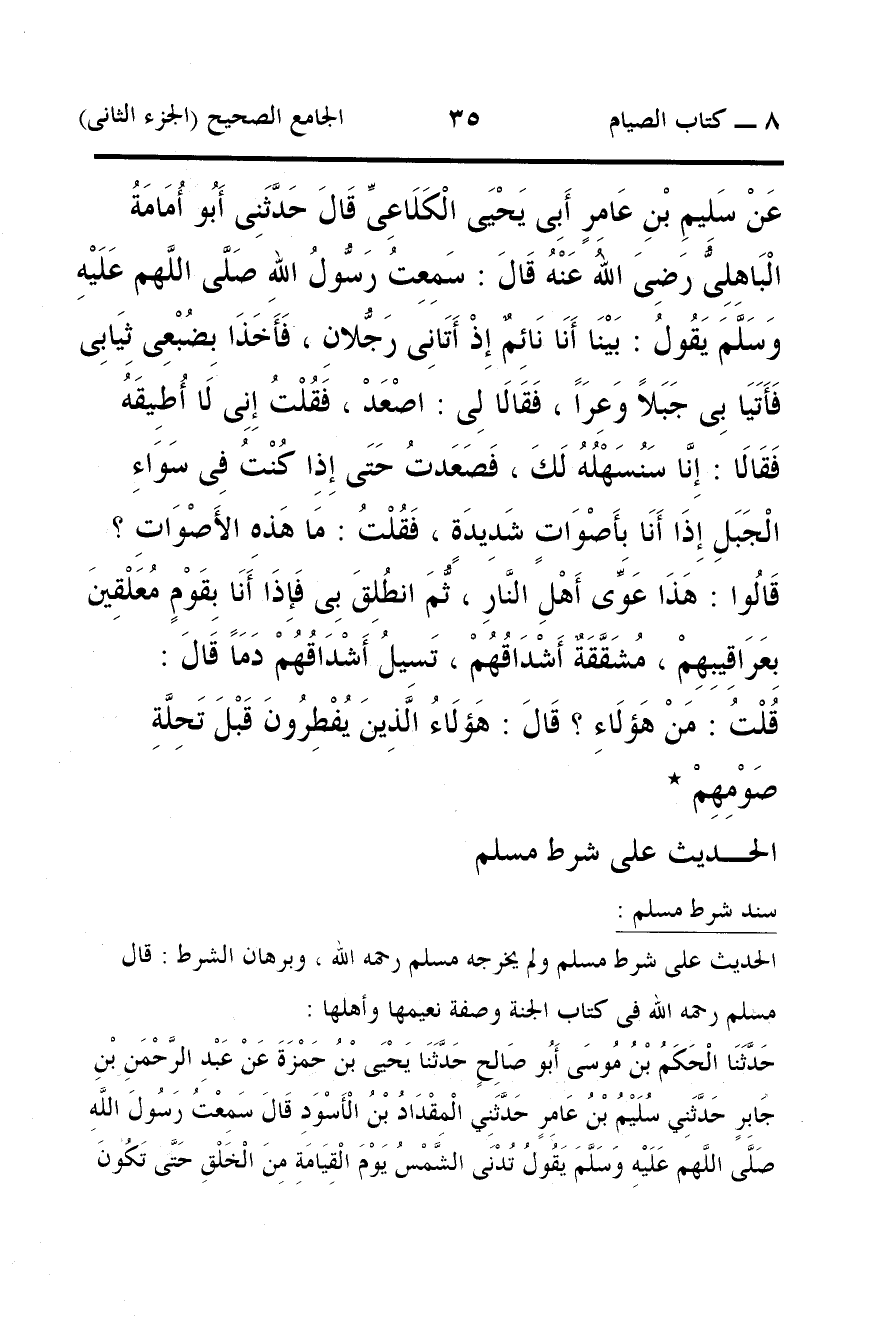 ٨ ــ كتاب الصيام ٣٥ الجامع الصحيح (الجزء الثانى)
عَنْ سَلِيمِ بْنِ عَامِرٍ أَبِى يَحْيَى الْكَلَاعِىِّ قَالَ حَدَّثَنِى أَبُو أُمَامَةُ
الْبَاهِلِىُّ رَضِىَ اللهُ عَنْهُ قَالَ : سَمِعتُ رَسُولُ اللهِ صَلَّى اللهم عَلَيْهِ
وَسَلَّمَ يَقُولُ : بَيْنَا أَنَا نَائِمٌ إِذْ أَتَانِى رَجُلانِ ، فَأَخَذَا بِضُبْعِى ثِيَابِى
فَأَتَيَا بِى جَبَلاً وَعِراً ، فَقَالَا لِى : اصْعَدْ ، فَقُلْتُ إِنِى لَا أُطِيقَهُ
فَقَالَا : إِنَّا سَنُسَهْلُهُ لَكَ ، فَصَعَدتُ حَتَى إِذا كُنْتُ فِى سَوَاءِ
الْجَبَلِ إِذَا أَنَا بِأَصْوَاتٍ شَدِيدَةٍ ، فَقُلْتُ : مَا هَذِهِ الأَصْوَاتِ ؟
قَالُوا : هَذَا عَوِّى أَهْلِ النَّارِ ، ثُّمَ انطُلِقَ بِى فَإِذَا أَنَا بِقَوْمٍ مُعَلْقِينَ
بِعَرَاقِيبِهِمْ ، مُشَقَّقَةٌ أَشْدَاقُهُمْ ، تَسِيلُ أَشْدَاقُهُمْ دَمَاً قَالَ :
قُلْتُ : مَنْ هَؤلَاءِ ؟ قَالَ : هَؤلَاءُ الَّذِينَ يُفْطِرُونَ قَبْلَ تَحِلَّةِ
صَوْمِهِمْ *
الحـــديث على شرط مسلم
سند شرط مسلم :
الحديث على شرط مسلم ولم يخرجه مسلم رحمه الله ، وبرهان الشرط : قال
مسلم رحمه الله فى كتاب الجنة وصفة نعيمها وأهلها :
حَدَّثَنَا الْحَكَمُ بْنُ مُوسَى أَبُو صَالِحٍ حَدَّثَنَا يَحْيَى بْنُ حَمْزَةَ عَنْ عَبْدِ الرَّحْمَنِ بْنِ
جَابِرٍ حَدَّثَنِي سُلَيْمُ بْنُ عَامِرٍ حَدَّثَنِي الْمِقْدَادُ بْنُ الْأَسْوَدِ قَالَ سَمِعْتُ رَسُولَ اللَّهِ
صَلَّى اللهم عَلَيْهِ وَسَلَّمَ يَقُولُ تُدْنَى الشَّمْسُ يَوْمَ الْقِيَامَةِ مِنَ الْخَلْقِ حَتَّى تَكُونَ